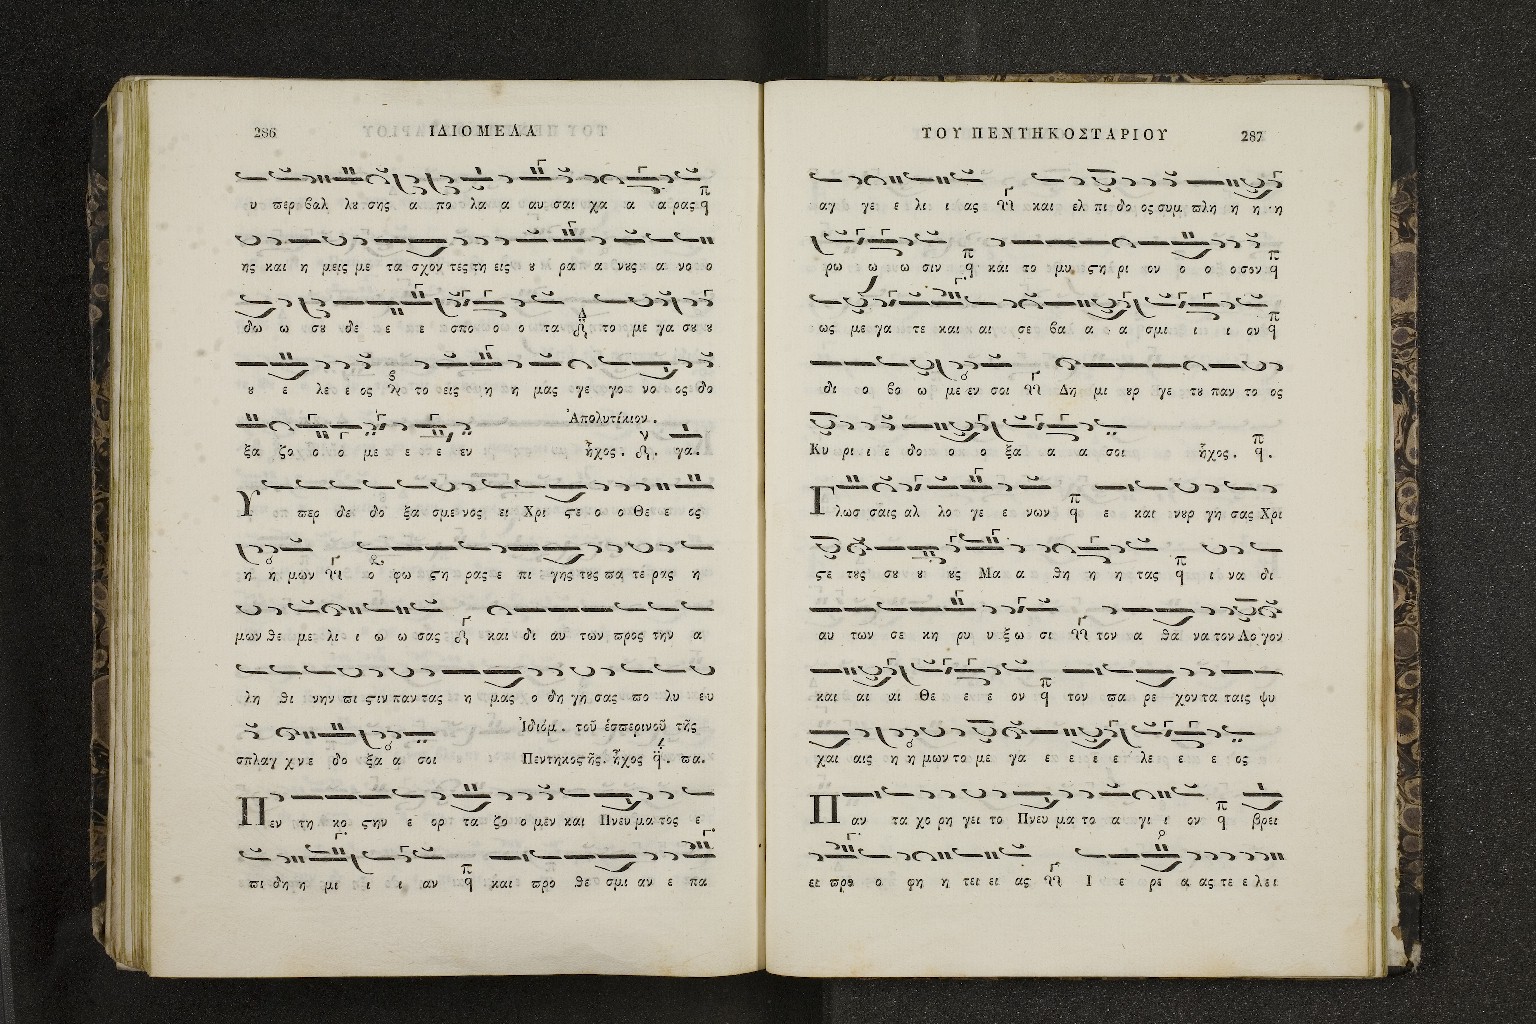 286 ΙΔΙΟΜΕΛΑ
υ περ βαλ λȣ σης α πο λα α αυ σαι χα α α ρας
ης και η μεις με τα σχον τες τη εις ȣ ρα α νȣς α νο ο
δω ω σȣ δε ε ε σπο ο ο τα το με γα σȣ ȣ
ȣ ε λε ε ος το εις η η μας γε γο νο ος δο
Ἀπολυτίκιον.
ξα ζο ο ο με ε ε εν ἦχος. γα.
Υ περ δε δο ξα σμε νος ει Χρι ϛε ο ο Θε ε ος
η η μων ο φω ϛη ρας ε πι γης τȣς πα τέ ρας η
μων θε με λι ι ω ω σας και δι αυ των προς την α
λη θι νην πι ϛιν παν τας η μας ο δη γη σας πο λυ ευ
Ἰδιόμ. τοῦ ἑσπερινοῦ τῆς
σπλαγ χνε δο ξα α σοι Πεντηκοϛῆς. ἦχος . πα.
Πεν τη κο ϛην ε ορ τα ζο ο μεν και Πνευ μα τος ε
πι δη η μι ι ι αν και προ θε σμι αν ε πα
ΤΟΥ ΠΕΝΤΗΚΟΣΤΑΡΙΟΥ 287
αγ γε ε λι ι ας και ελ πι δο ος συμ πλη η η η
ρω ω ω σιν και το μυ ϛη ρι ον ο ο ο σον
ως με γα τε και αι σε βα α α σμι ι ι ον
δι ο βο ω με εν σοι Δη μι ȣρ γε τȣ παν το ος
Κυ ρι ι ε δο ο ο ξα α α σοι ἦχος.
Γλωσ σαις αλ λο γε ε νων ε και νȣρ γη σας Χρι
ϛε τȣς σȣ ȣ ȣς Μα α θη η η τας ι να δι
αυ των σε κη ρυ υ ξω σι τον α θα να τον Λο γον
και αι αι Θε ε ε ον τον πα ρε χον τα ταις ψυ
χαι αις η η μων το με γα ε ε ε ε λε ε ε ος
Παν τα χο ρη γει το Πνευ μα το α γι ι ον βρει
ει προ ο φη η τει ει ας Ι ε ρε α ας τε ε λει